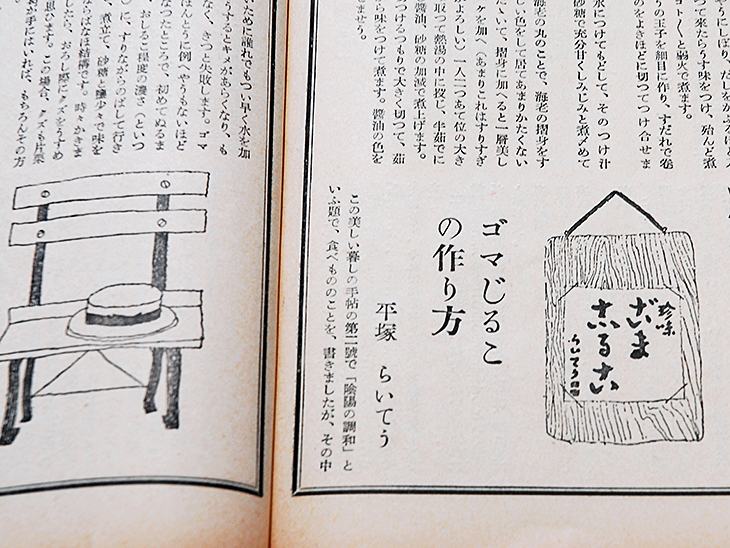 やうにしぼり、だしをかぶるほど入
つて来たらうす味をつけ、殆んど煮
ヨト〱と弱火で煮ます。
うの玉子を細目に作り、すだれで巻
のをよきほどに切つてつけ合せま
水につけてもどして、そのつけ汁
砂糖で充分甘くしみじみと煮〆めて
海老の丸のことで、海老の摺身をす
しい色をして居てあまりかたくない
たいて、摺身に加へると一層美し
ヶを加へ(あまりこれはすりすぎ
がよろしい)一人二つあて位の大き
取つて熱湯の中に投じ、半茹でに
醤油、砂糖の加減で煮上げます。
つけるつもりで大きく切つて、茹
ら味をつけて煮ます。醤油の色を
ませう。
珍味
ごま
らいてう
ゴマじるこ
の作り方
平塚 らいてう
この美しい暮しの手帖の第二號で「陰陽の調和」と
いふ題で、食べもののことを、書きましたが、その中
いために譲れでもつい早く水を加
うするとキメがあらくなり、も
なく、きつと失敗します。ゴマ
ほんとうに例へやうもないほど
なつたところで、初めてぬるま
おしるこ程度の濃さ(といつ
)に、すりながらのばして行き
煮立て、砂糖と鹽少々で味を
ばなほ結構です。時々かきま
じたら、おろし際にクズをうすめ
思ひます。この場合、クズも片栗
手にはいれば、もちろんその方